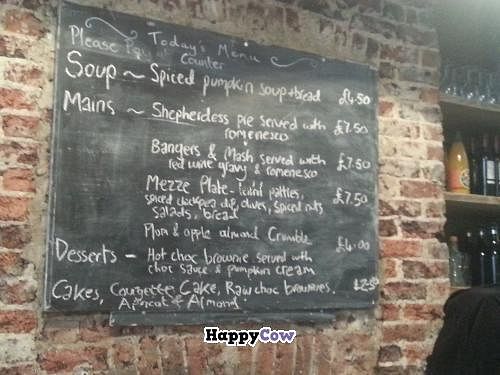 Today's Menu
Please Pay @ counter
Soup ~ Spiced pumpkin soup + bread £4.50
Mains ~ Shepherdess pie served with £7.50
romenesco
Bangers & Mash served with £7.50
red wine gravy & romenesco
Mezze Plate - patties, £7.50
spiced chickpea dip, olives, spiced nuts
salads, bread
Plum & apple almond Crumble £4.00
Desserts - Hot choc brownie served with
choc sauce & pumpkin cream
Cakes, Courgette Cake, Raw choc brownies. £2.50
Apricot & Almond
HappyCow